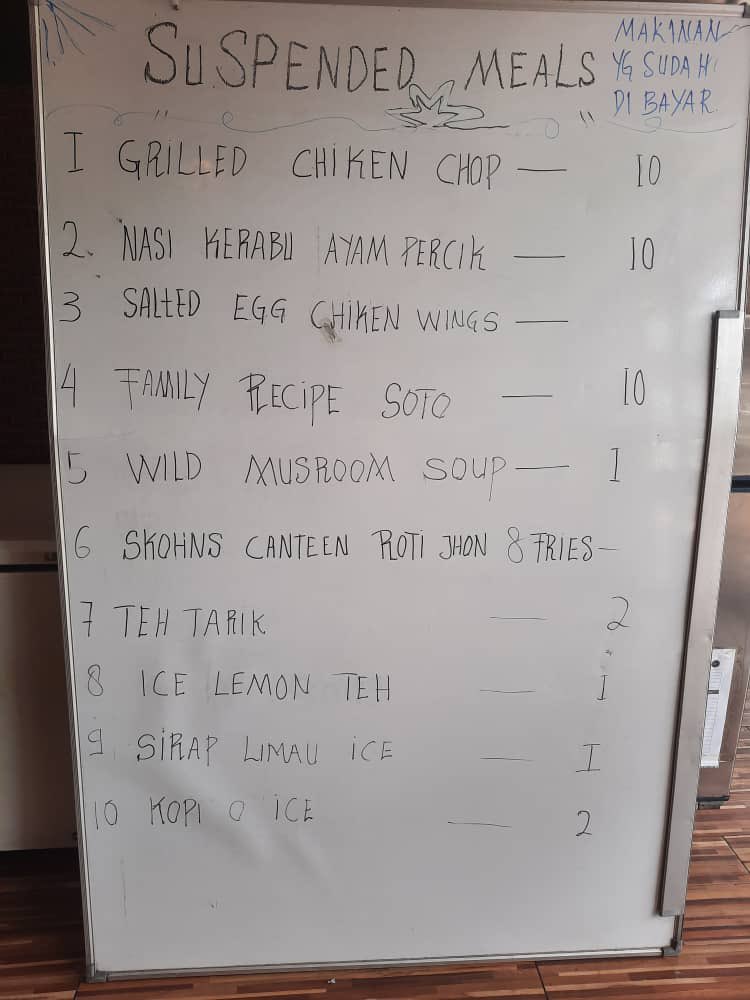 SUSPENDED MEALS
MAKANAN
YG SUDAH
DI BAYAR
1 GRILLED CHIKEN CHOP — 10
2. NASI KERABU AYAM PERCIK — 10
3 SALTED EGG CHIKEN WINGS —
4 FAMILY RECIPE SOTO — 10
5 WILD MUSROOM SOUP — 1
6 SKOHNS CANTEEN ROTI JHON & FRIES —
7 TEH TARIK — 2
8 ICE LEMON TEH — 1
9 SIRAP LIMAU ICE — 1
10 KOPI O ICE — 2